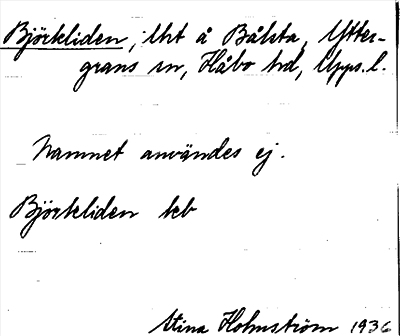 Björkliden, lht å Bålsta, Ytter-
grans sn, Håbo hd, Upps. l.
Namnet användes ej.
Björkliden kb
Stina Holmström 1936